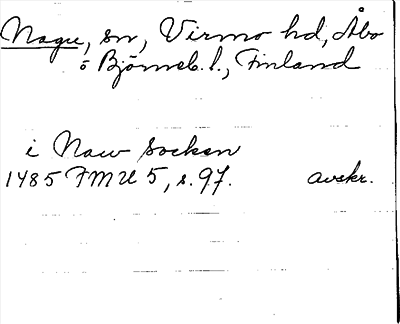 Nagu, sn, Virmo hd, Åbo
o Björneb. l., Finland
i Naw Socken
1485 FMU 5, s. 97. avskr.